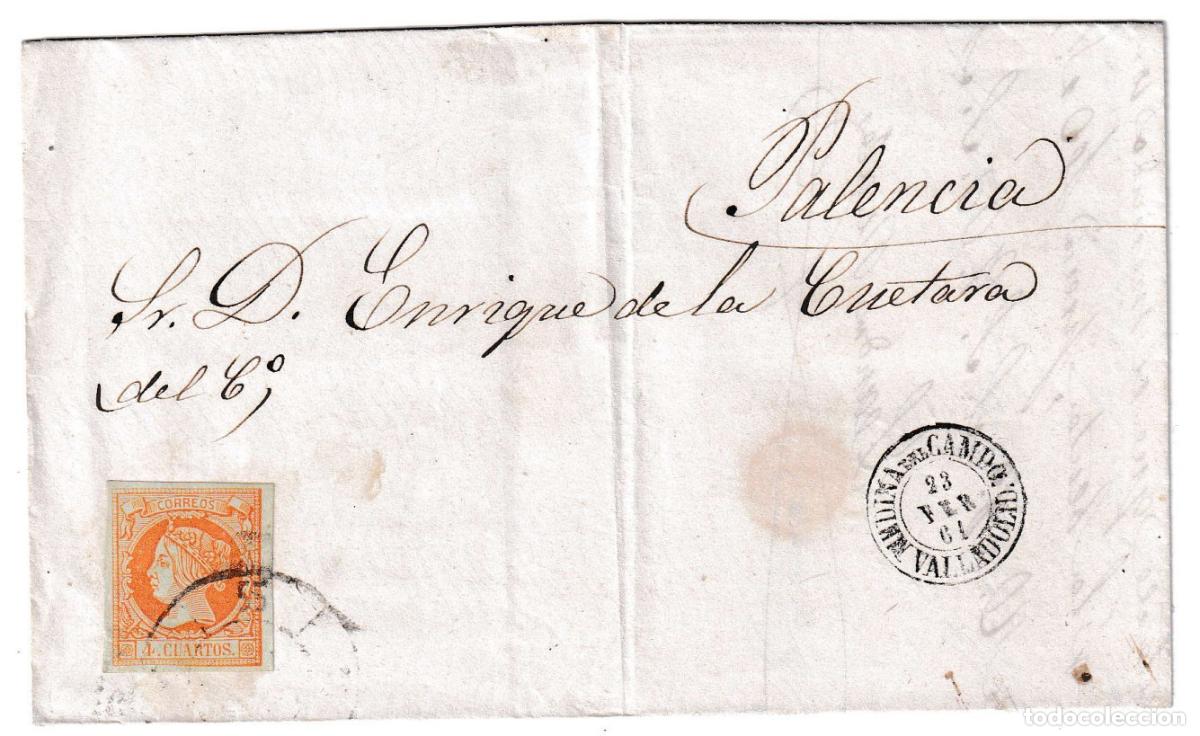 Palencia
Sr. D. Enrique de la Cuetara
del Cº,
CORREOS
4 CUARTOS.
MEDINA DEL CAMPO.
23
FEB
61
VALLADOLID.
todocoleccion